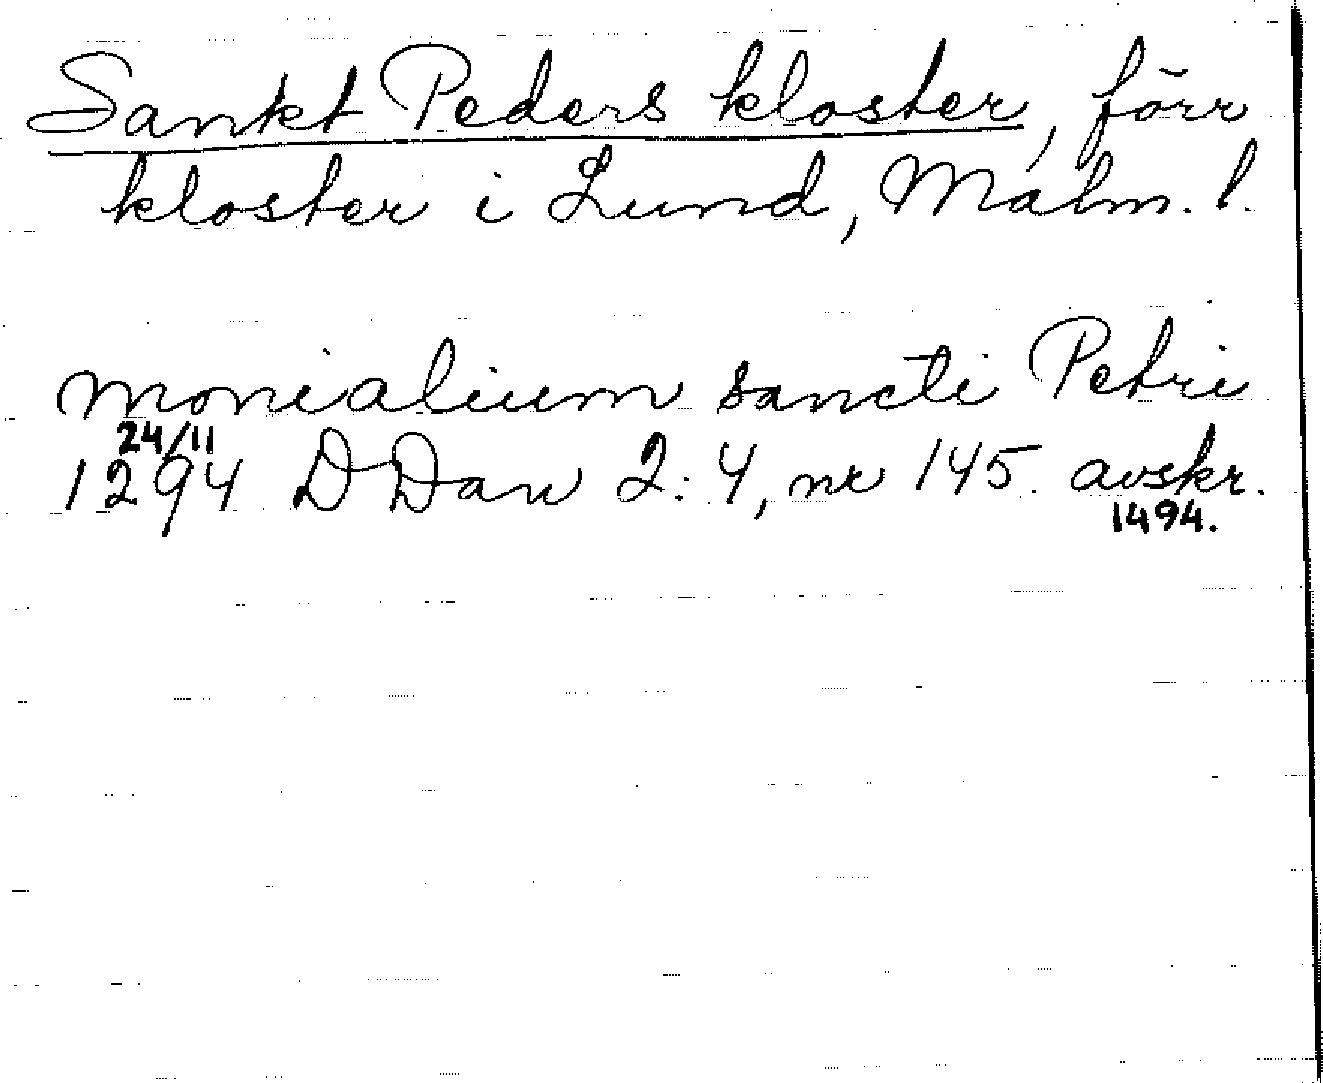 Sankt Peders kloster, förr
kloster i Lund, Malm. l.
monialium sancti Petri
24/11
1294 DDan 2:4, nr 145. avskr.
1494.